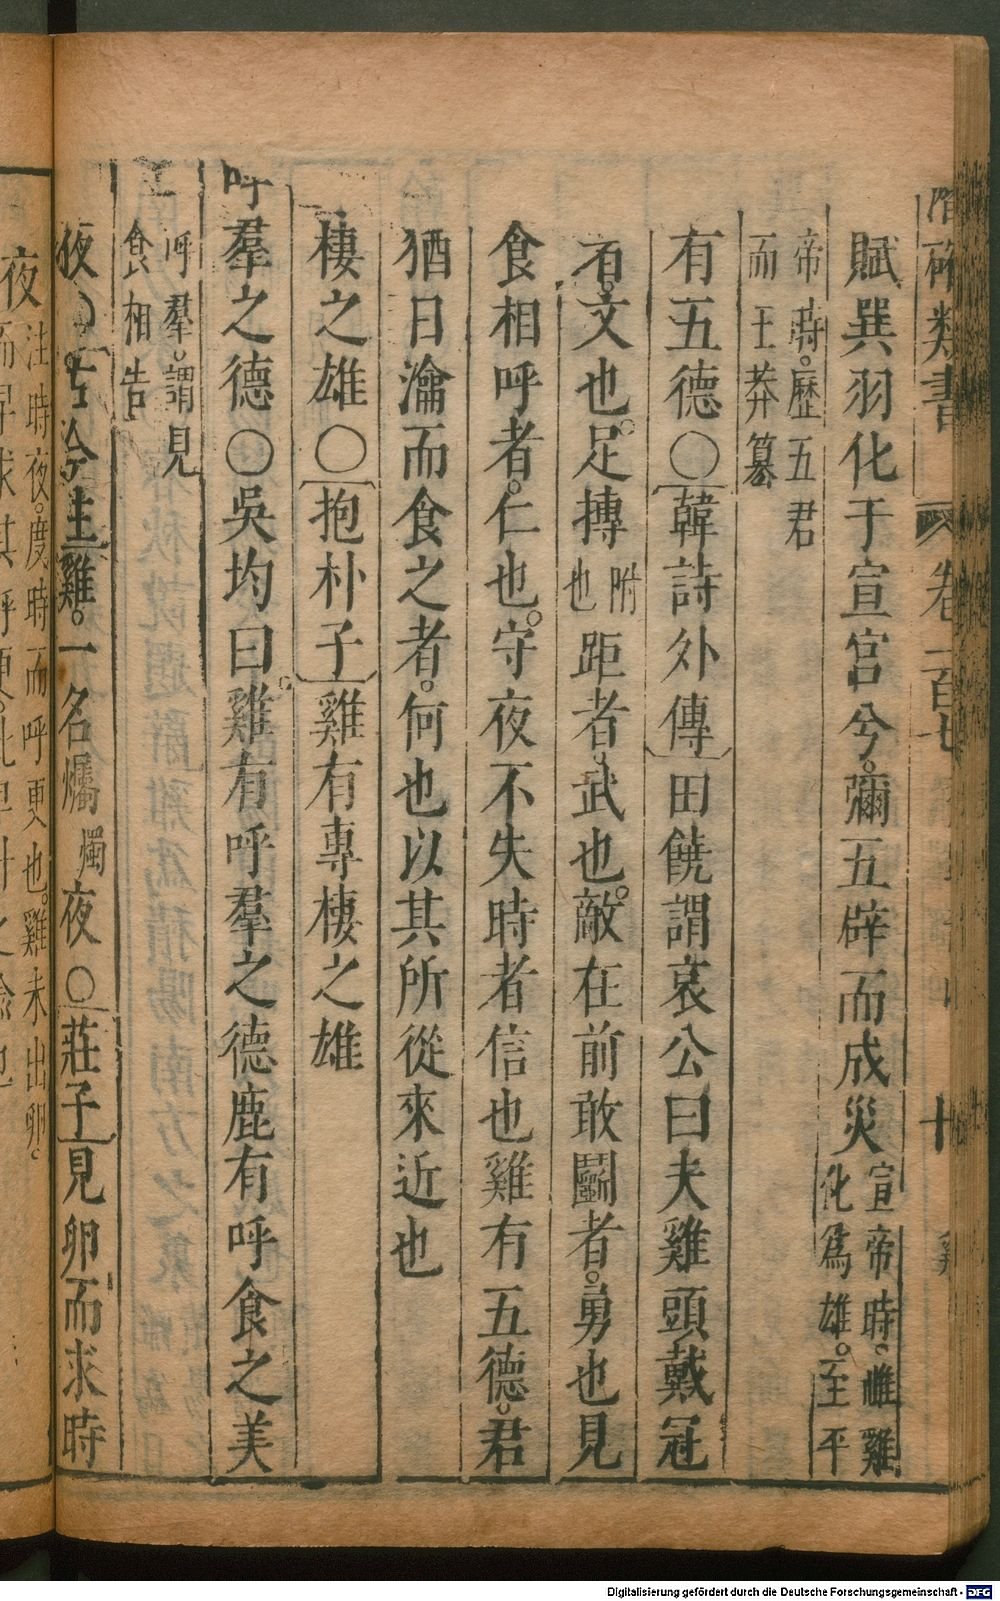 賦巽羽化于宣宮兮。彌五辟而成災宣帝時。雌雞化爲雄。至平
帝時。歷五君而王莽篡
有五德〇韓詩外傳田饒謂哀公曰夫雞頭戴冠
者。文也。足搏附也距者。武也。敵在前敢鬭者。勇也見
食相呼者。仁也。守夜不失時者信也雞有五德。君
猶日瀹而食之者。何也以其所從來近也
棲之雄〇抱朴子雞有專棲之雄
呼羣之德〇吳均曰。雞有呼羣之德鹿有呼食之美
呼羣。謂見食相告
夜〇古今注雞。一名燭夜〇莊子見卵而求時
夜
注時夜。度時而呼更也。雞未出卵。
Digitalisierung gefördert durch die Deutsche Forschungsgemeinschaft - DFG